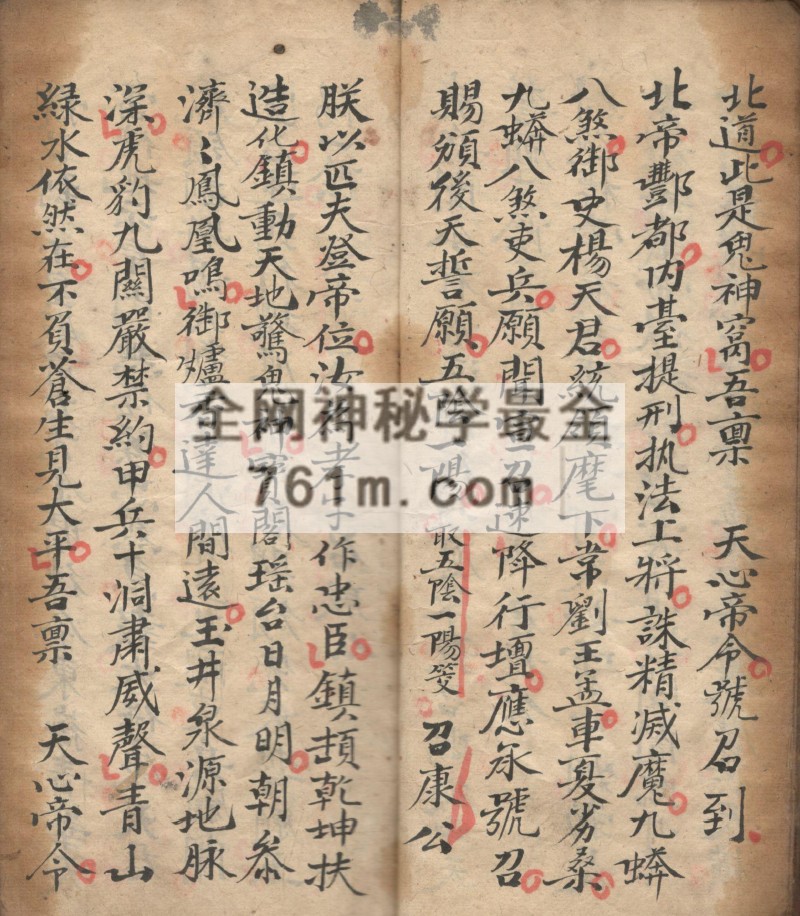 北道此是鬼神窩吾禀　天心帝令號召到
北帝酆都內臺提刑执法上將誅精滅魔九蟒
八煞御史楊天君統領麾下常劉王孟車夏劣桑
九蟒八煞吏兵願聞召速降行壇應承號召
賜頒後天誓願五陰一陽取五陰一陽筊　召康公
朕以匹夫登帝位汝作忠臣鎮頡乾坤扶
造化鎮動天地驚鬼神寳閣瑶台日月明朝叅
濟〻鳳凰鳴御爐達人間遠玉井泉源地脉
深虎豹九關嚴禁約甲兵十洞肅威聲青山
緑水依然在不負蒼生見大平吾禀　天心帝令
全网神秘学最全
761m.com